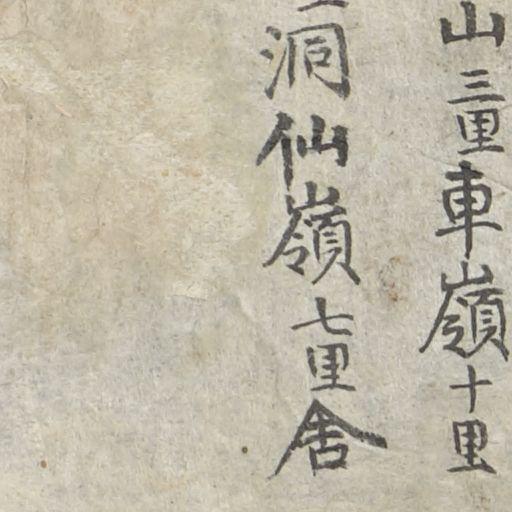 山三里車嶺十里
洞仙嶺七里舎